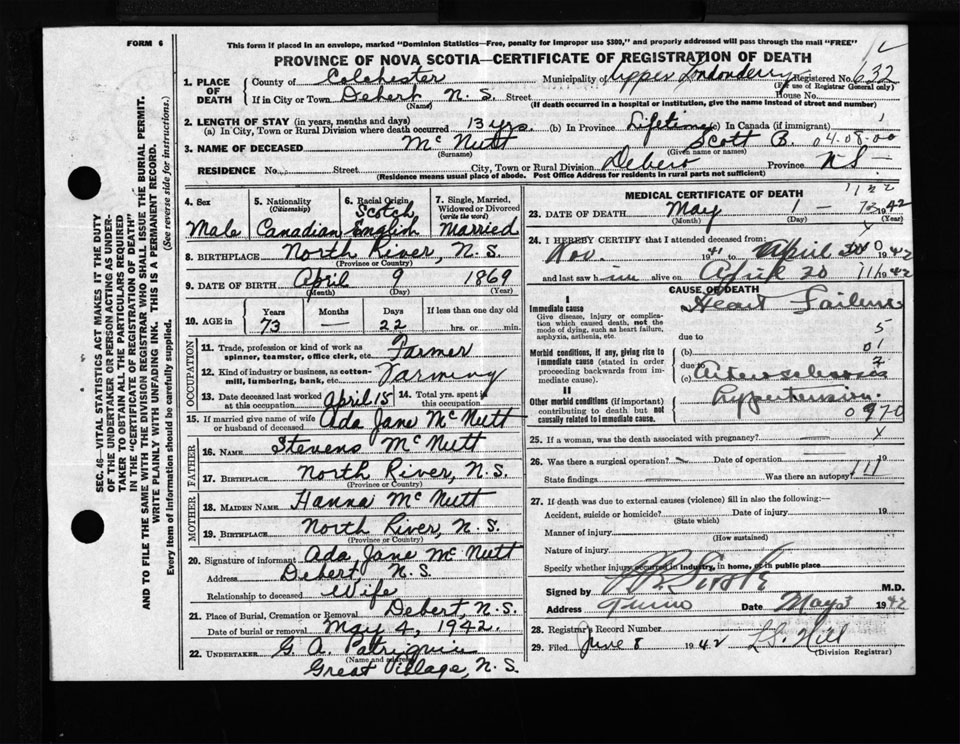 FORM 6
This form if placed in an envelope, marked "Dominion Statistics—Free, penalty for improper use $300," and properly addressed will pass through the mail "FREE"
PROVINCE OF NOVA SCOTIA—CERTIFICATE OF REGISTRATION OF DEATH
SEC. 46—VITAL STATISTICS ACT MAKES IT THE DUTY
OF THE UNDERTAKER OR PERSON ACTING AS UNDER-
TAKER TO OBTAIN ALL THE PARTICULARS REQUIRED
IN THE "CERTIFICATE OF REGISTRATION OF DEATH"
AND TO FILE THE SAME WITH THE DIVISION REGISTRAR WHO SHALL ISSUE THE BURIAL PERMIT.
WRITE PLAINLY WITH UNFADING INK. THIS IS A PERMANENT RECORD.
Every item of information should be carefully supplied. (See reverse side for instructions.)
1. PLACE OF DEATH County of Colchester Municipality of Upper Londonderry Registered No. 632
(For use of Registrar General only)
If in City or Town Debert N. S. Street House No.
(Name) (If death occurred in a hospital or institution, give the name instead of street and number)
2. LENGTH OF STAY (in years, months and days)
(a) In City, Town or Rural Division where death occurred 13 yrs. (b) In Province Lifetime (c) In Canada (if immigrant)
3. NAME OF DECEASED McNutt Scott B. 04-08-00
(Surname) (Given name or names)
RESIDENCE No. Street City, Town or Rural Division Debert Province N S
(Residence means usual place of abode. Post Office Address for residents in rural parts not sufficient)
4. Sex Male
5. Nationality (Citizenship) Canadian
6. Racial Origin Scotch English
7. Single, Married, Widowed or Divorced (write the word) Married
8. BIRTHPLACE North River, N.S.
(Province or Country)
9. DATE OF BIRTH April 9 1869
(Month) (Day) (Year)
10. AGE in Years 73 Months — Days 22 If less than one day old hrs. or min.
OCCUPATION
11. Trade, profession or kind of work as spinner, teamster, office clerk, etc. Farmer
12. Kind of industry or business, as cotton-mill, lumbering, bank, etc. Farming
13. Date deceased last worked at this occupation April 15 14. Total yrs. spent in this occupation
15. If married give name of wife or husband of deceased Ada Jane McNutt
FATHER
16. NAME Stevens McNutt
17. BIRTHPLACE North River, N.S.
(Province or Country)
MOTHER
18. MAIDEN NAME Hanna McNutt
19. BIRTHPLACE North River, N.S.
(Province or Country)
20. Signature of informant Ada Jane McNutt
Address Debert, N.S.
Relationship to deceased Wife
21. Place of Burial, Cremation or Removal Debert, N.S.
Date of burial or removal May 4, 1942.
22. UNDERTAKER G. A.
(Name and address)
Great Village, N.S.
MEDICAL CERTIFICATE OF DEATH
23. DATE OF DEATH May 1 1942
(Month) (Day) (Year)
24. I HEREBY CERTIFY that I attended deceased from:
Nov. 1941 to April 1942
and last saw him alive on April 20 1942
CAUSE OF DEATH
I
Immediate cause Heart Failure
Give disease, injury or complication which caused death, not the mode of dying, such as heart failure, asphyxia, asthenia, etc.
due to
Morbid conditions, if any, giving rise to immediate cause (stated in order proceeding backwards from immediate cause). (b)
due to
(c) Arteriosclerosis
II
Other morbid conditions (if important) contributing to death but not causally related to immediate cause. Hypertension
0970
25. If a woman, was the death associated with pregnancy?
26. Was there a surgical operation? Date of operation 19
State findings Was there an autopsy?
27. If death was due to external causes (violence) fill in also the following:—
Accident, suicide or homicide? Date of injury 19
(State which)
Manner of injury
(How sustained)
Nature of injury
Specify whether injury occurred in industry, in home, or in public place
Signed by M.D.
Address Truro Date May 3 1942
28. Registrar's Record Number
29. Filed June 8 1942 L.S. Hill
(Division Registrar)